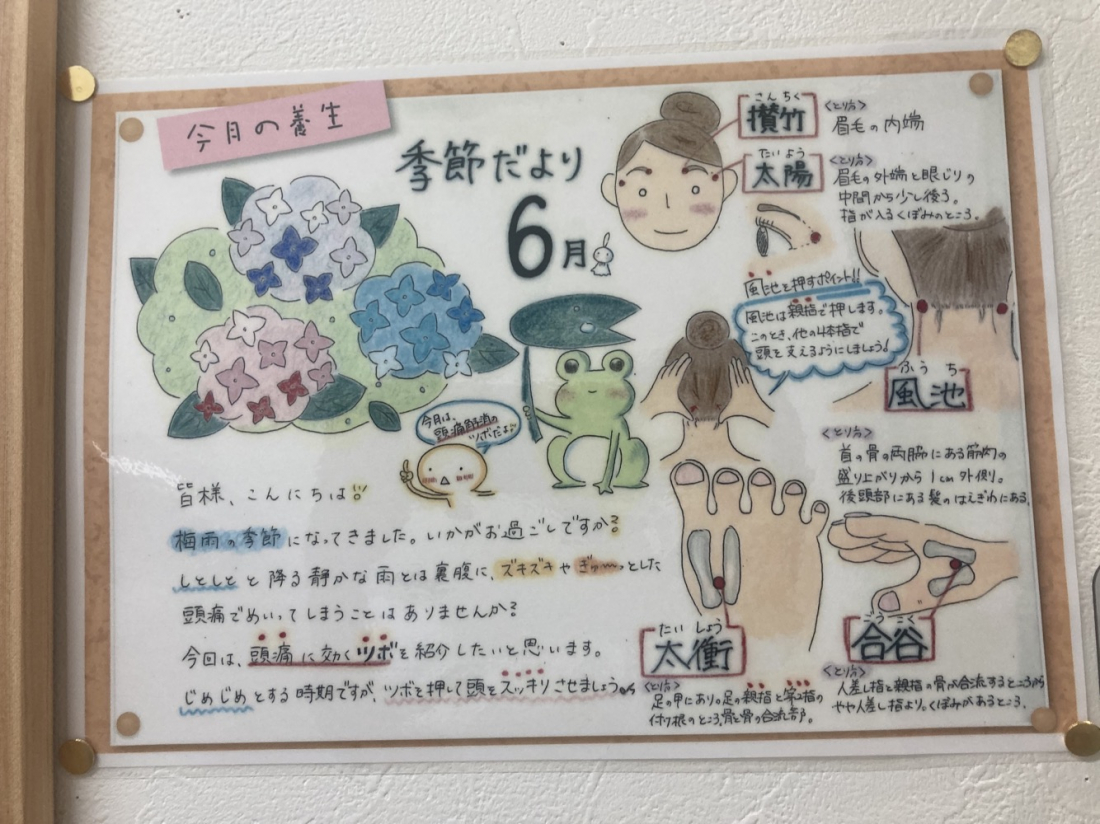 今月の養生
季節だより
6月
今月は、
頭痛解消の
ツボだよ♪
皆様、こんにちは!!
梅雨の季節になってきました。いかがお過ごしですか?
しとしとと降る静かな雨とは裏腹に、ズキズキやぎゅ〜っとした
頭痛でめいってしまうことはありませんか?
今回は、頭痛に効くツボを紹介したいと思います。
じめじめとする時期ですが、ツボを押して頭をスッキリさせましょう。
さんちく
攅竹
<とり方>
眉毛の内端
たいよう
太陽
<とり方>
眉毛の外端と眼じりの
中間から少し後ろ。
指が入るくぼみのところ。
風池を押すポイント!!
風池は親指で押します。
このとき、他の4本指で
頭を支えるようにしましょう!
ふうち
風池
<とり方>
首の骨の両脇にある筋肉の
盛り上がりから1cm外側。
後頭部にある髪のはえぎわにある。
たいしょう
太衝
<とり方>
足の甲にあり。足の親指と第2指の
付け根のところ、骨と骨の合流部。
ごうこく
合谷
<とり方>
人差し指と親指の骨が合流するところから
やや人差し指より。くぼみがあるところ。